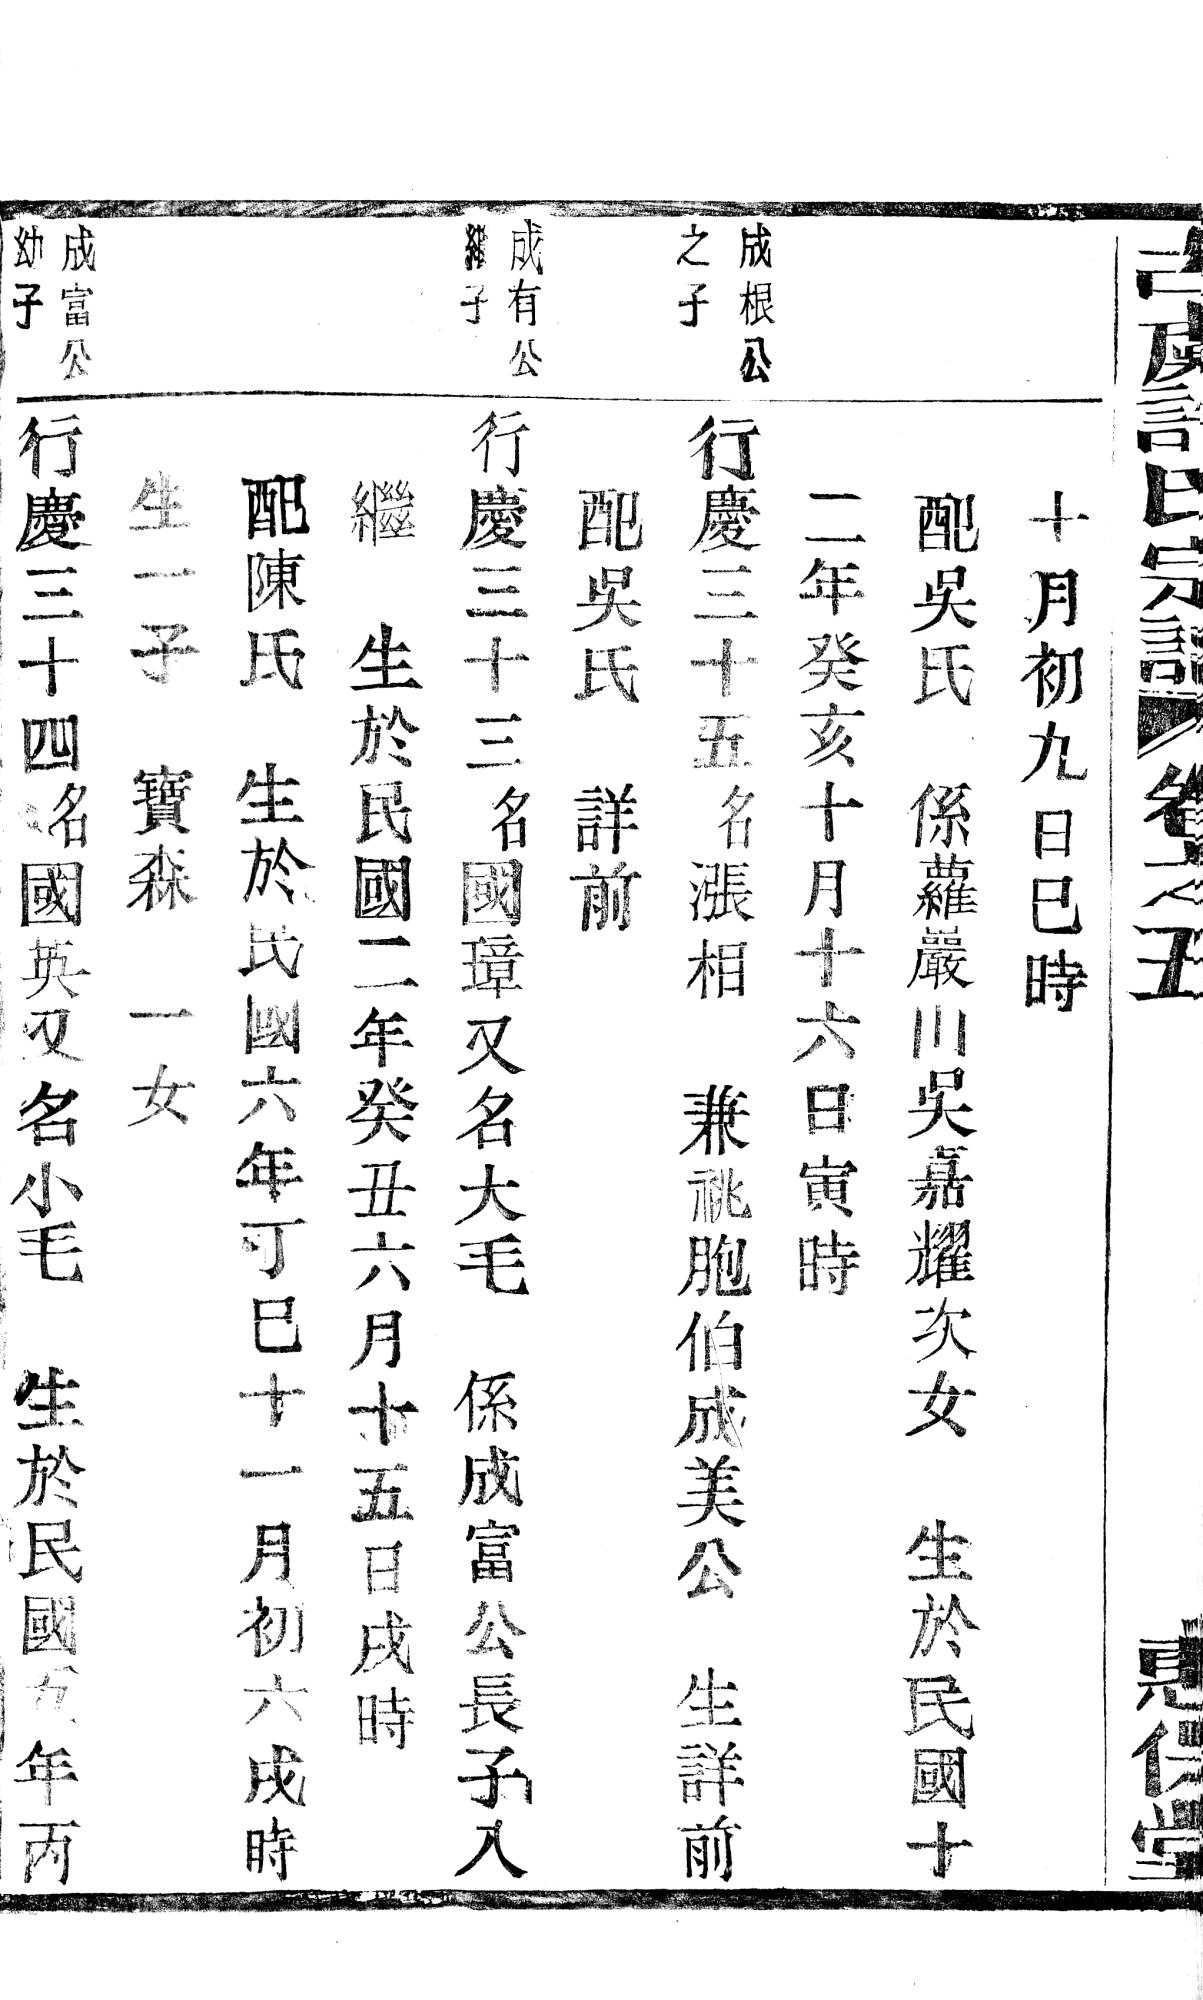 古虞許氏宗譜 卷之五 惠倫堂
十月初九日巳時
配吳氏 係蘿巖川吳嘉耀次女 生於民國十
二年癸亥十月十六日寅時
成根公
之子
行慶三十五名漲相 兼祧胞伯成美公 生詳前
配吳氏 詳前
成有公
繼子
行慶三十三名國璋又名大毛 係成富公長子入
繼 生於民國二年癸丑六月十五日戌時
配陳氏 生於民國六年丁巳十一月初六戌時
生一子 寶森 一女
成富公
幼子
行慶三十四名國英又名小毛 生於民國五年丙